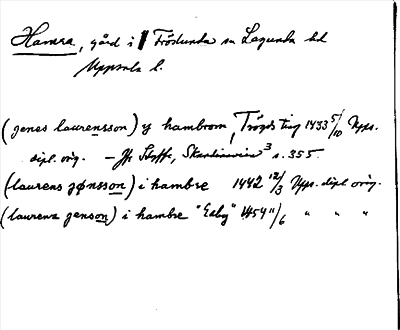 Hamra, gård i Frösunda sn Lagunda hd
Uppsala l.
(jenes laurensson) y hambrom, Trögds ting 1433 5/10 Upps.
dipl. orig. — Jfr Styffe, Skandinavien³ s. 355.
(laurens jønsson) i hambre 1442 12/3 Upps. dipl orig.
(laurens jenson) i hambre "Ealby" 1454 11/6 " " "